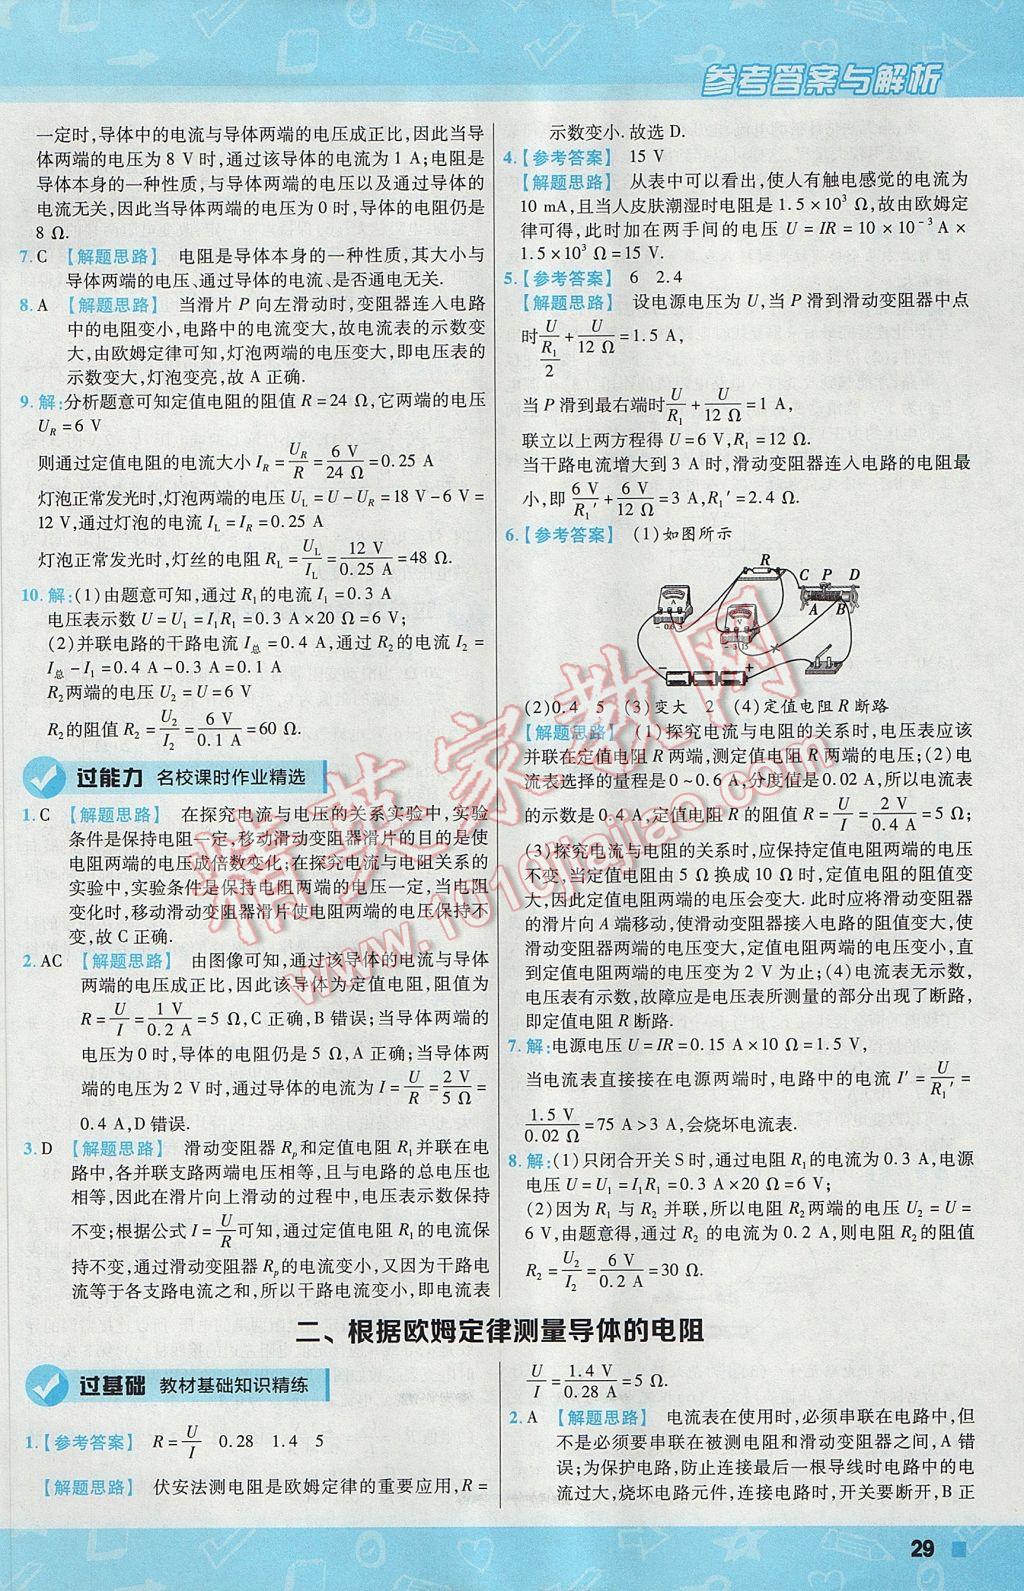 参考答案与解析
一定时,导体中的电流与导体两端的电压成正比,因此当导
体两端的电压为 8 V 时,通过该导体的电流为 1 A;电阻是
导体本身的一种性质,与导体两端的电压以及通过导体的
电流无关,因此当导体两端的电压为 0 时,导体的电阻仍是
8 Ω.
7. C 【解题思路】 电阻是导体本身的一种性质,其大小与
导体两端的电压、通过导体的电流、是否通电无关.
8. A 【解题思路】 当滑片 P 向左滑动时,变阻器连入电路
中的电阻变小,电路中的电流变大,故电流表的示数变
大,由欧姆定律可知,灯泡两端的电压变大,即电压表的
示数变大,灯泡变亮,故 A 正确.
9. 解:分析题意可知定值电阻的阻值 R=24 Ω,它两端的电压
U_R=6 V
则通过定值电阻的电流大小 I_R=U_R/R=6 V/24 Ω=0.25 A
灯泡正常发光时,灯泡两端的电压 U_L=U-U_R=18 V-6 V=
12 V,通过灯泡的电流 I_L=I_R=0.25 A
灯泡正常发光时,灯丝的电阻 R_L=U_L/I_L=12 V/0.25 A=48 Ω.
10. 解:(1)由题意可知,通过 R₁的电流 I₁=0.3 A
电压表示数 U=U₁=I₁R₁=0.3 A×20 Ω=6 V;
(2)并联电路的干路电流 I总=0.4 A,通过 R₂的电流 I₂=
I总-I₁=0.4 A-0.3 A=0.1 A
R₂两端的电压 U₂=U=6 V
R₂的阻值 U₂/I₂=6 V/0.1 A=60 Ω.
过能力 名校课时作业精选
1. C 【解题思路】 在探究电流与电压的关系实验中,实验
条件是保持电阻一定,移动滑动变阻器滑片的目的是使
电阻两端的电压成倍数变化;在探究电流与电阻关系的
实验中,实验条件是保持电阻两端的电压一定,当电阻
变化时,移动滑动变阻器滑片使电阻两端的电压保持不
变,故 C 正确.
2. AC 【解题思路】 由图像可知,通过该导体的电流与导体
两端的电压成正比,因此该导体为定值电阻,阻值为
R=U/I=1 V/0.2 A=5 Ω,C 正确,B 错误;当导体两端的
电压为 0 时,导体的电阻仍是 5 Ω,A 正确;当导体两
端的电压为 2 V 时,通过导体的电流为 I=U/R=2 V/5 Ω=
0.4 A,D 错误.
3. D 【解题思路】 滑动变阻器 Rp和定值电阻 R₁并联在电
路中,各并联支路两端电压相等,且与电路的总电压也
相等,因此在滑片向上滑动的过程中,电压表示数保持
不变;根据公式 I=U/R可知,通过定值电阻 R₁的电流保
持不变,通过滑动变阻器 Rp的电流变小,又因为干路电
流等于各支路电流之和,所以干路电流变小,即电流表
示数变小.故选 D.
4.【参考答案】 15 V
【解题思路】 从表中可以看出,使人有触电感觉的电流为
10 mA,且当人皮肤潮湿时电阻是 1.5×10³ Ω,故由欧姆定
律可得,此时加在两手间的电压 U=IR=10×10⁻³ A×
1.5×10³ Ω=15 V.
5.【参考答案】 6 2.4
【解题思路】 设电源电压为 U,当 P 滑到滑动变阻器中点
时U/(R₁/2)+U/12 Ω=1.5 A,
当 P 滑到最右端时U/R₁+U/12 Ω=1 A,
联立以上两方程得 U=6 V,R₁=12 Ω.
当干路电流增大到 3 A 时,滑动变阻器连入电路的电阻最
小,即6 V/R₁′+6 V/12 Ω=3 A,R₁′=2.4 Ω.
6.【参考答案】 (1)如图所示
R C P D
A B
A
- 0.6 3
V
- 3 15
− +
(2)0.4 5 (3)变大 2 (4)定值电阻 R 断路
【解题思路】 (1)探究电流与电阻的关系时,电压表应该
并联在定值电阻 R 两端,测定值电阻 R 两端的电压;(2)电
流表选择的量程是 0~0.6 A,分度值是 0.02 A,所以电流表
的示数是 0.4 A,定值电阻 R 的阻值 R=U/I=2 V/0.4 A=5 Ω;
(3)探究电流与电阻的关系时,应保持定值电阻两端的电压
不变,当定值电阻由 5 Ω 换成 10 Ω 时,定值电阻的阻值变
大,因此定值电阻两端的电压会变大.此时应将滑动变阻器
的滑片向 A 端移动,使滑动变阻器接入电路的阻值变大,使
滑动变阻器两端的电压变大,定值电阻两端的电压变小,直
到定值电阻两端的电压变为 2 V 为止;(4)电流表无示数,
电压表有示数,故障应是电压表所测量的部分出现了断路,
即定值电阻 R 断路.
7. 解:电源电压 U=IR=0.15 A×10 Ω=1.5 V,
当电流表直接接在电源两端时,电路中的电流 I′=U/R₁′=
1.5 V/0.02 Ω=75 A>3 A,会烧坏电流表.
8. 解:(1)只闭合开关 S 时,通过电阻 R₁的电流为 0.3 A,电源
电压 U=U₁=I₁R₁=0.3 A×20 Ω=6 V;
(2)因为 R₁ 与 R₂ 并联,所以电阻 R₂两端的电压 U₂=U=
6 V,由题意得,通过 R₂ 的电流为 0.2 A,则电阻 R₂的阻值
R₂=U₂/I₂=6 V/0.2 A=30 Ω.
二、根据欧姆定律测量导体的电阻
过基础 教材基础知识精练
1.【参考答案】 R=U/I 0.28 1.4 5
【解题思路】 伏安法测电阻是欧姆定律的重要应用,R=
U/I=1.4 V/0.28 A=5 Ω.
2. A 【解题思路】 电流表在使用时,必须串联在电路中,但
不是必须要串联在被测电阻和滑动变阻器之间,A 错
误;为保护电路,防止连接最后一根导线时电路中的电
流过大,烧坏电路元件,连接电路时,开关要断开,B 正
29
精英家教网
www.1010jiajiao.com